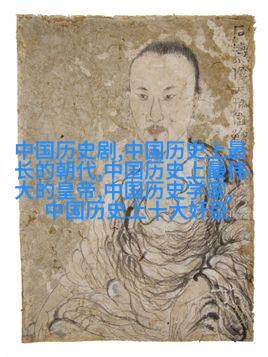 中国历史剧,中国历史上最
长的朝代,中国历史上最伟
大的皇帝,中国历史学家,
中国历史上十大奸臣